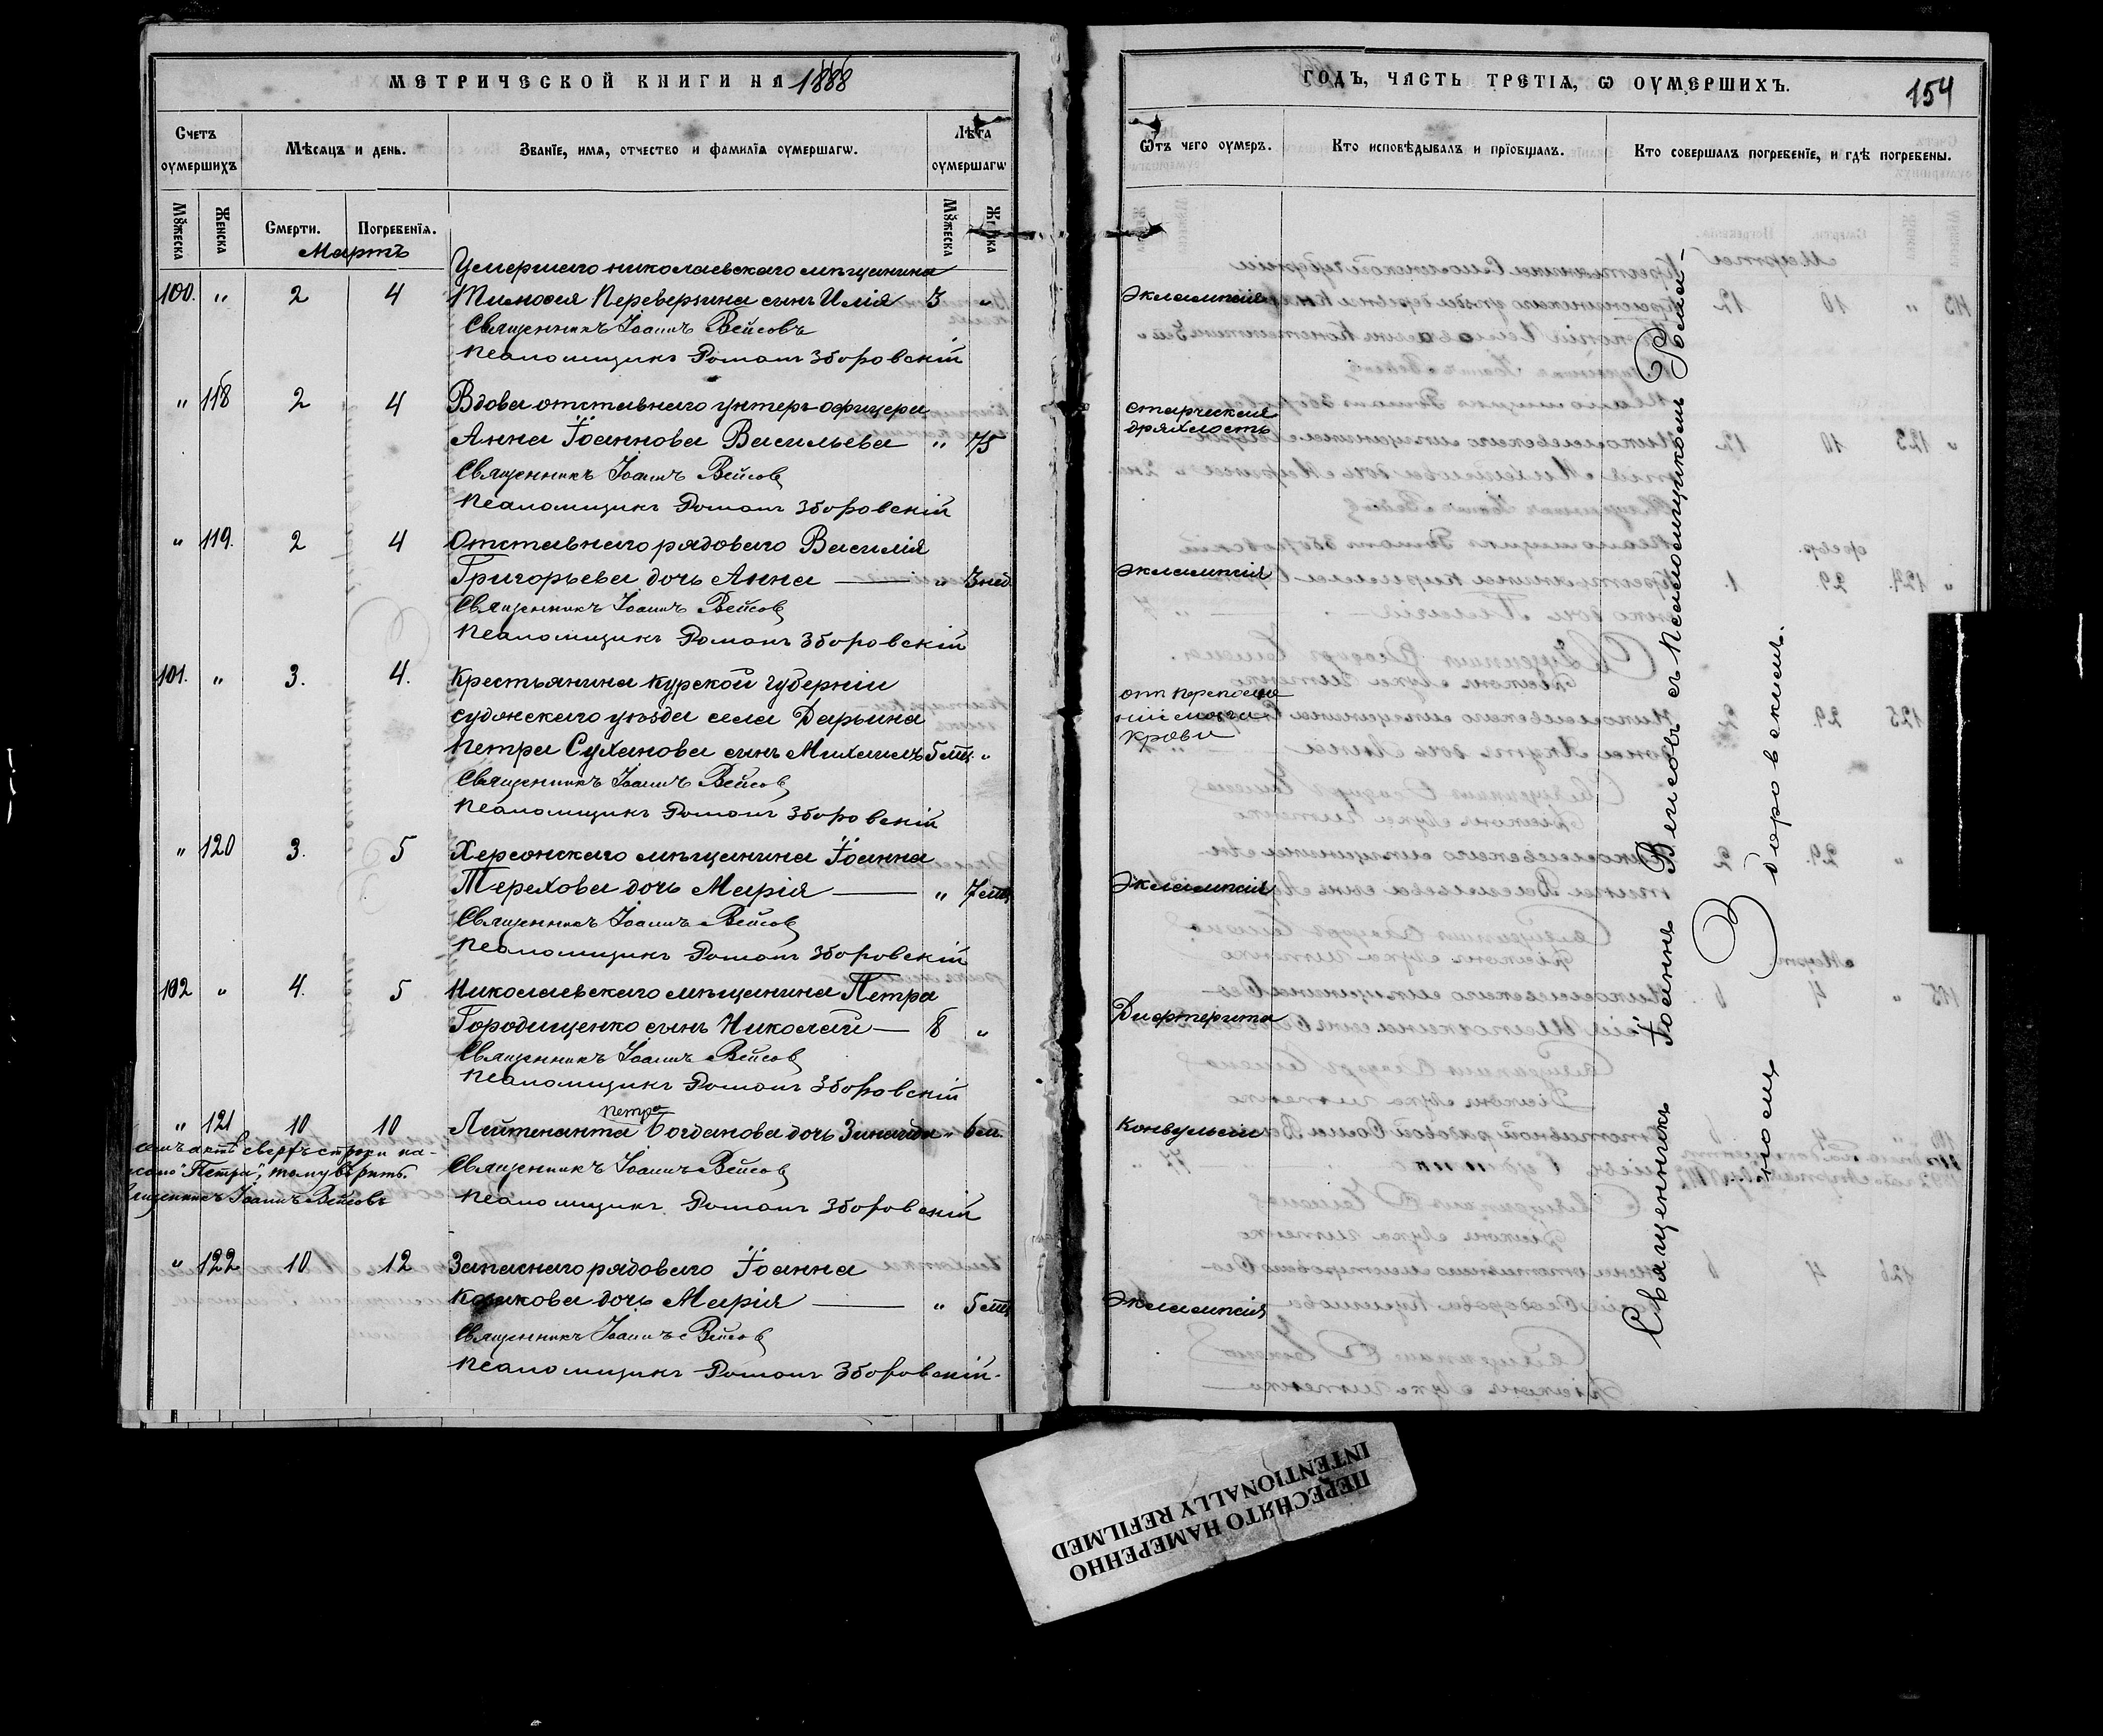 МЕТРИЧЕСКОЙ КНИГИ НА 1888
Счетъ оумершихъ
Мѣсяцъ и день.
Званїе, имя, отчество и фамилїя оумершагѡ.
Лѣта оумершагѡ
Мꙋжеска
Женска
Смерти.
Погребенїя.
Мꙋжеска
Женска
Мартъ
Умершаго николаевскаго мѣщанина
100. " 2 4 Тимофея Переверзина сынъ Илія 3 "
Священникъ Іоаннъ Вейсовъ
Псаломщикъ Романъ Зборовскій
" 118 2 4 Вдова отставнаго унтеръ-офицера
Анна Іоаннова Васильева " 75
Священникъ Іоаннъ Вейсовъ
Псаломщикъ Романъ Зборовскій
" 119. 2 4 Отставнаго рядоваго Василія
Григорьева дочь Анна — " 3 нед.
Священникъ Іоаннъ Вейсовъ
Псаломщикъ Романъ Зборовскій
101. " 3. 4. Крестьянина курской губерніи
суджнскаго уѣзда села Дарьина
Петра Суханова сынъ Михаилъ 5 мц. "
Священникъ Іоаннъ Вейсовъ
Псаломщикъ Романъ Зборовскій
" 120 3. 5 Херсонскаго мѣщанина Іоанна
Терехова дочь Марія — " 7 мц.
Священникъ Іоаннъ Вейсовъ
Псаломщикъ Романъ Зборовскій
102 " 4. 5 Николаевскаго мѣщанина Петра
Городищенко сынъ Николай — 8 "
Священникъ Іоаннъ Вейсовъ
Псаломщикъ Романъ Зборовскій
Петра
" 121 10 10 Лейтенанта Богданова дочь Зинаида " 6 м.
семъ актѣ сверхъ строки на-
"Петра", тому вѣрить.
Священникъ Іоаннъ Вейсовъ
Священникъ Іоаннъ Вейсовъ
Псаломщикъ Романъ Зборовскій
" 122 10 12 Запаснаго рядоваго Іоанна
Козикова дочь Марія — " 5 мц.
Священникъ Іоаннъ Вейсовъ
Псаломщикъ Романъ Зборовскій.
ГОДЪ, ЧАСТЬ ТРЕТІЯ, Ѡ ОУМЕРШИХЪ.
154
Ѿтъ чего оумеръ.
Кто исповѣдывалъ и прїобщалъ.
Кто совершалъ погребенїе, и гдѣ погребены.
Эклампсія
старческая
дряхлость
Эклампсія
крови
Эклампсія
Дифтерита
Конвульсіи
Эклампсія
Священникъ Іоаннъ Вейсовъ съ Псаломщикомъ Рома-
номъ Зборовскимъ.
ПЕРЕСНЯТО НАМЕРЕННО
INTENTIONALLY REFILMED